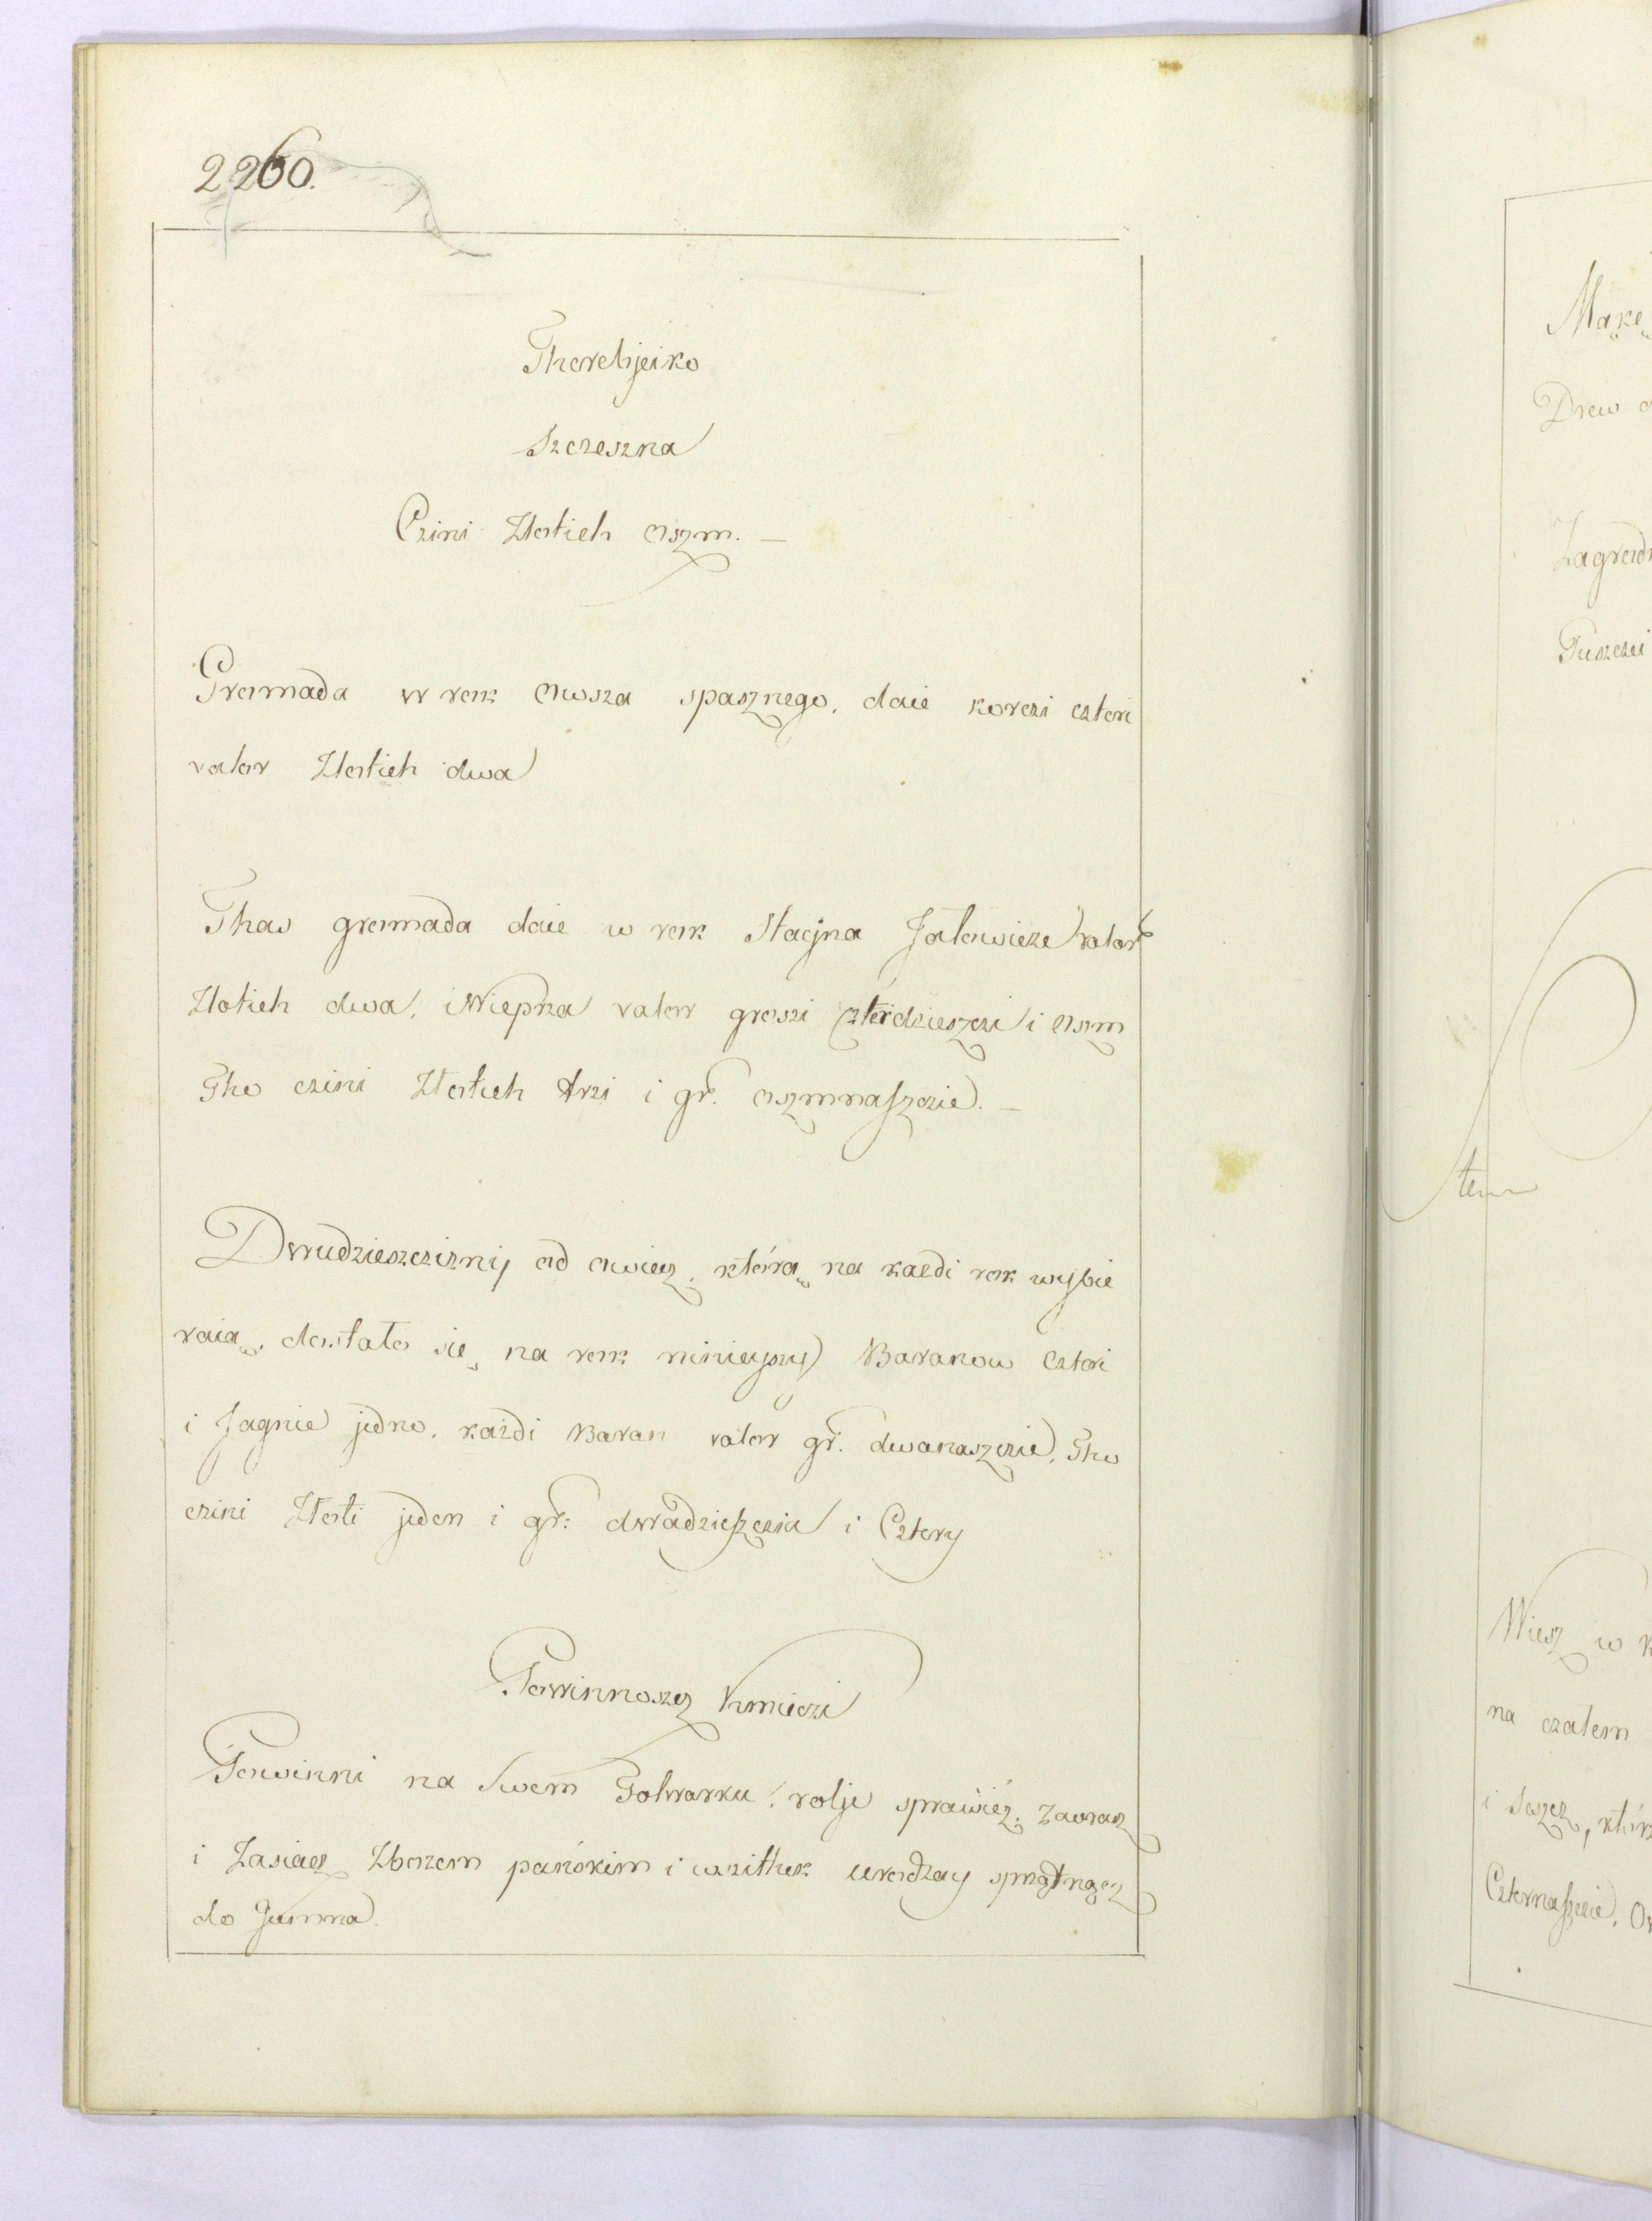 2260.
Thorelyeiko
Szczeszna
Czini Zlotich oszm. —
Gromada w rok owsza spasznego, daie korczi cztori
valor Zlotich dwa
Thas gromada daie w rok Stacyna Jalowicze valor
Zlotich dwa, i Wieprza valor groszi czterdzieszczi i oszm
Tho czini Złotich trzi i gr. oszmnaszczie. —
Dwudzieszcziznij od owiecz, którą na kazdi rok wybie
raią, dostało się na rok minieyszy Baranow cztori
i Jagnie jedno, każdi Baran valor gr. dwanaszczie, Tho
czini Złoti jeden i gr: dwadzieszczia i Cztery
Powinnoszcz Kmieczi
Powinni na Swem Folwarku, rolje sprawicz, zaoracz
i Zasiacz Zbozem pańskim i wszithek urodzay sprzątnącz
do Gumna.
Mąkę
Drew
Zagrod
Puszczi
Wiesz w
na czałem
i Szescz, któr
Czternaszczie. O